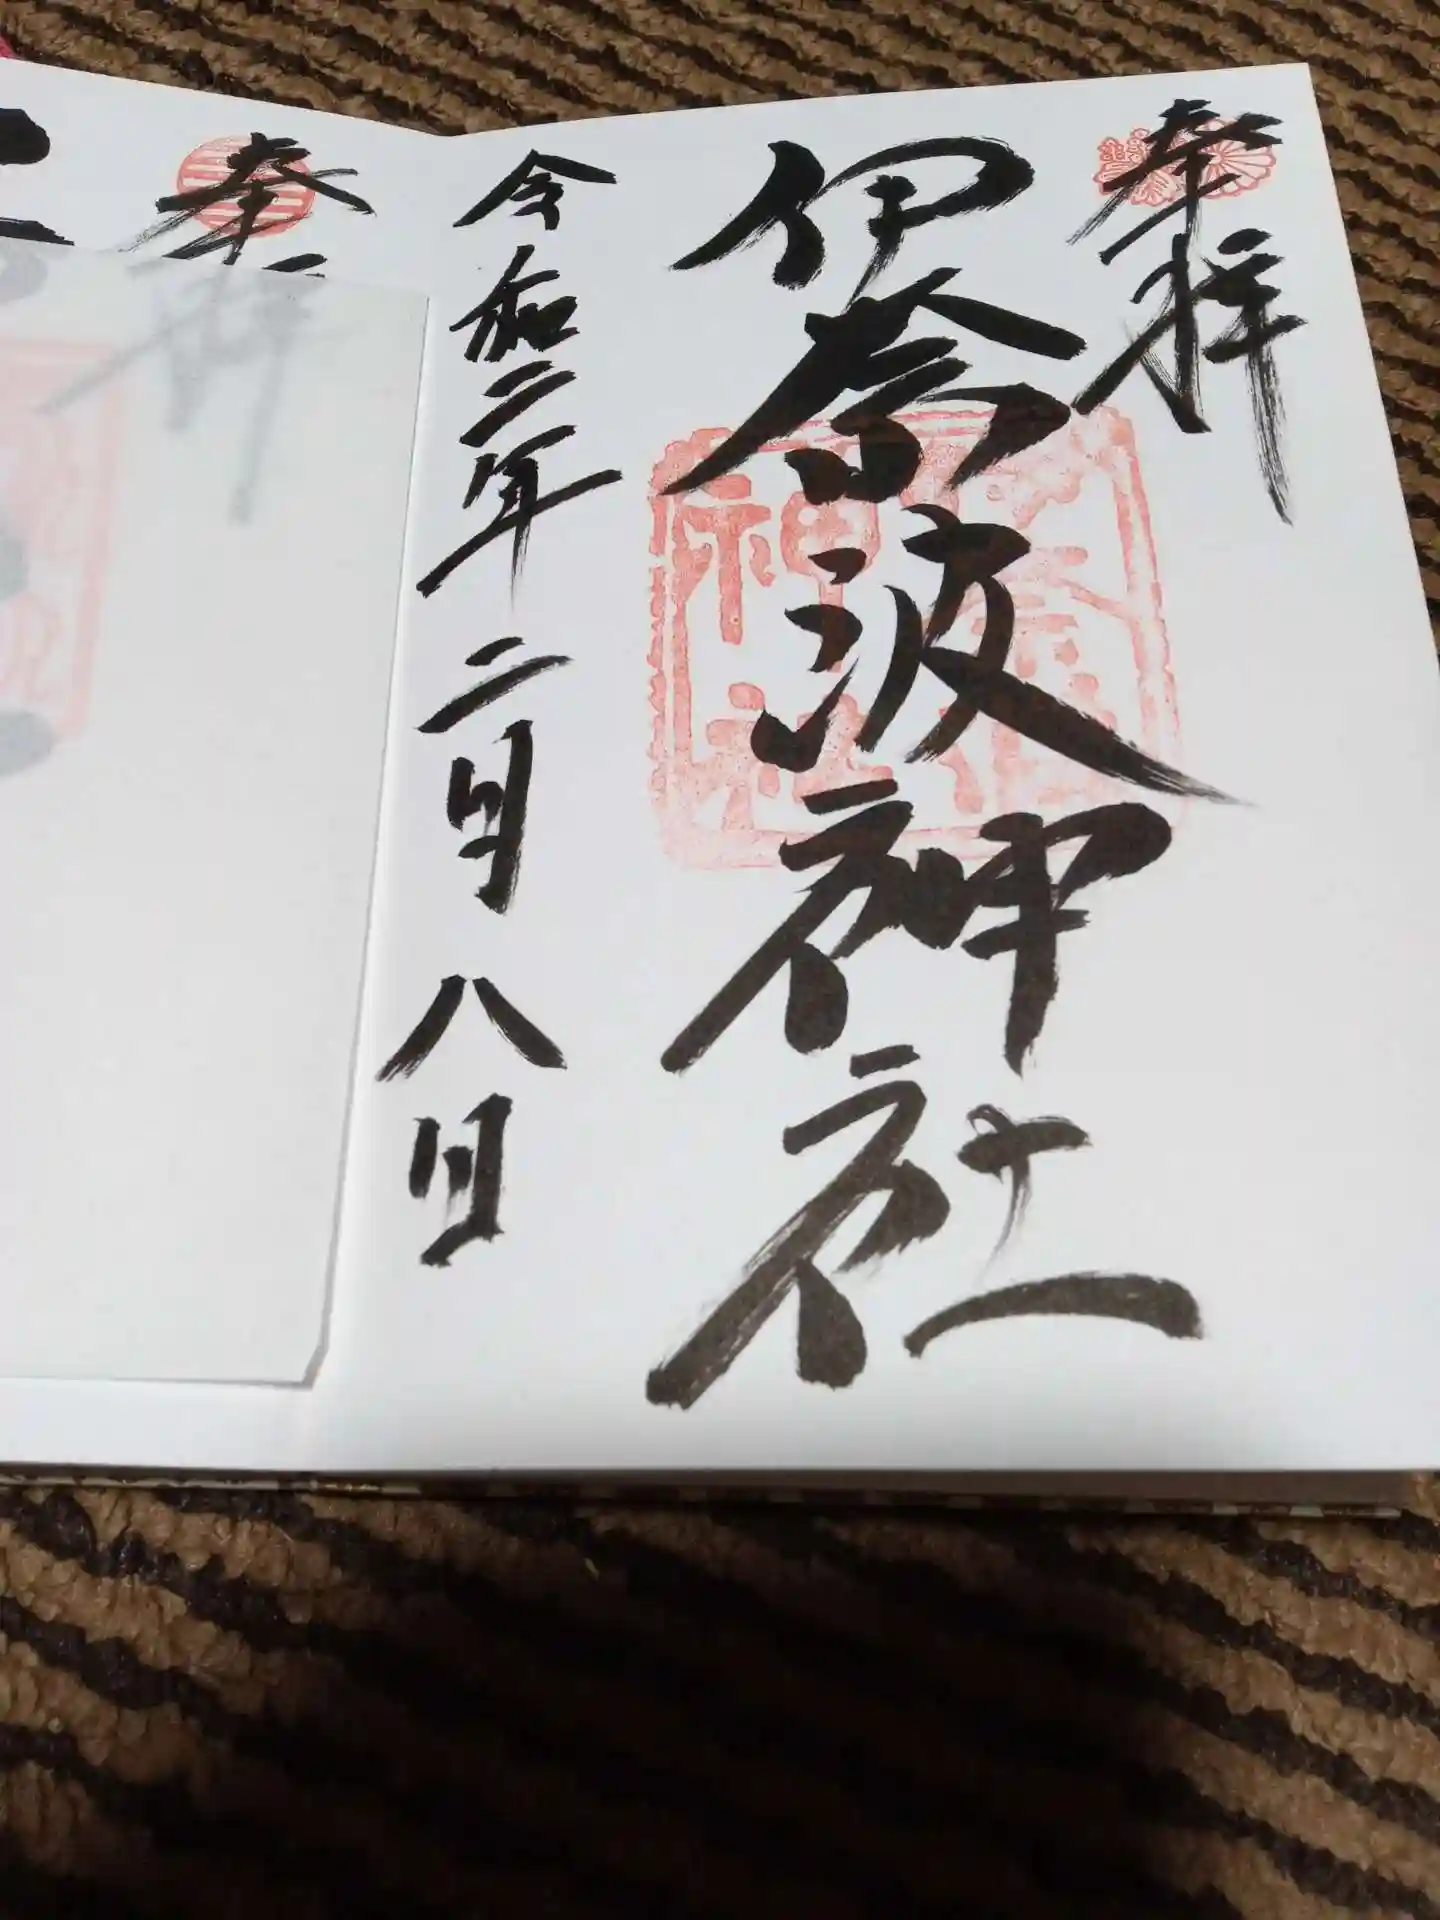 奉拝
伊奈波神社
令和二年二月八日
奉拝